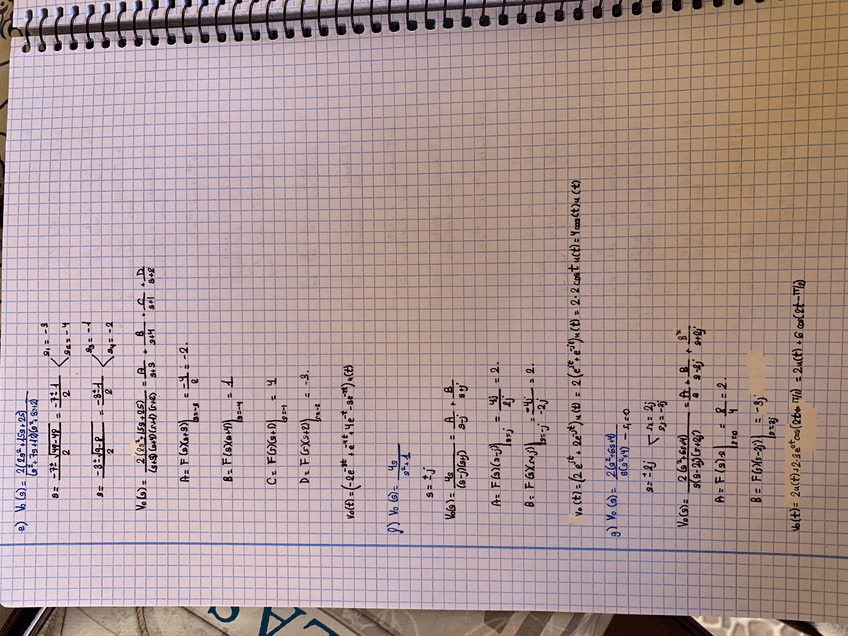 e) V₀(s) = 2(2s²+15s+25) / (s²+7s+12)(s²+3s+2)
s = -7 ± √49-48 / 2 = -7 ± 1 / 2 s₁ = -3 s₂ = -4
s = -3 ± √9-8 / 2 = -3 ± 1 / 2 s₃ = -1 s₄ = -2
V₀(s) = 2(2s²+15s+25) / (s+3)(s+4)(s+1)(s+2) = A/s+3 + B/s+4 + C/s+1 + D/s+2
A = F(s)(s+3)|s=-3 = -4/2 = -2.
B = F(s)(s+4)|s=-4 = 1
C = F(s)(s+1)|s=-1 = 4
D = F(s)(s+2)|s=-2 = -3.
V₀(t) = (-2e⁻³ᵗ + e⁻⁴ᵗ + 4e⁻ᵗ - 3e⁻²ᵗ) u(t)
f) V₀(s) = 4s / s²+1
s = ± j
V₀(s) = 4s / (s-j)(s+j) = A/s-j + B/s+j
A = F(s)(s-j)|s=j = 4j/2j = 2.
B = F(s)(s+j)|s=-j = -4j/-2j = 2.
V₀(t) = (2e^jt + 2e^-jt) u(t) = 2(e^jt + e^-jt) u(t) = 2·2cost u(t) = 4cos(t) u(t)
g) V₀(s) = 2(s²+6s+4) / s(s²+4) → s₁=0
s = ± 2j s₂ = 2j s₃ = -2j
V₀(s) = 2(s²+6s+4) / s(s-2j)(s+2j) = A/s + B/s-2j + B*/s+2j
A = F(s)·s|s=0 = 8/4 = 2.
B = F(s)(s-2j)|s=2j = -3j
V₀(t) = 2u(t) + 2·3e⁰ᵗcos(2t - π/2) = 2u(t) + 6cos(2t - π/2)